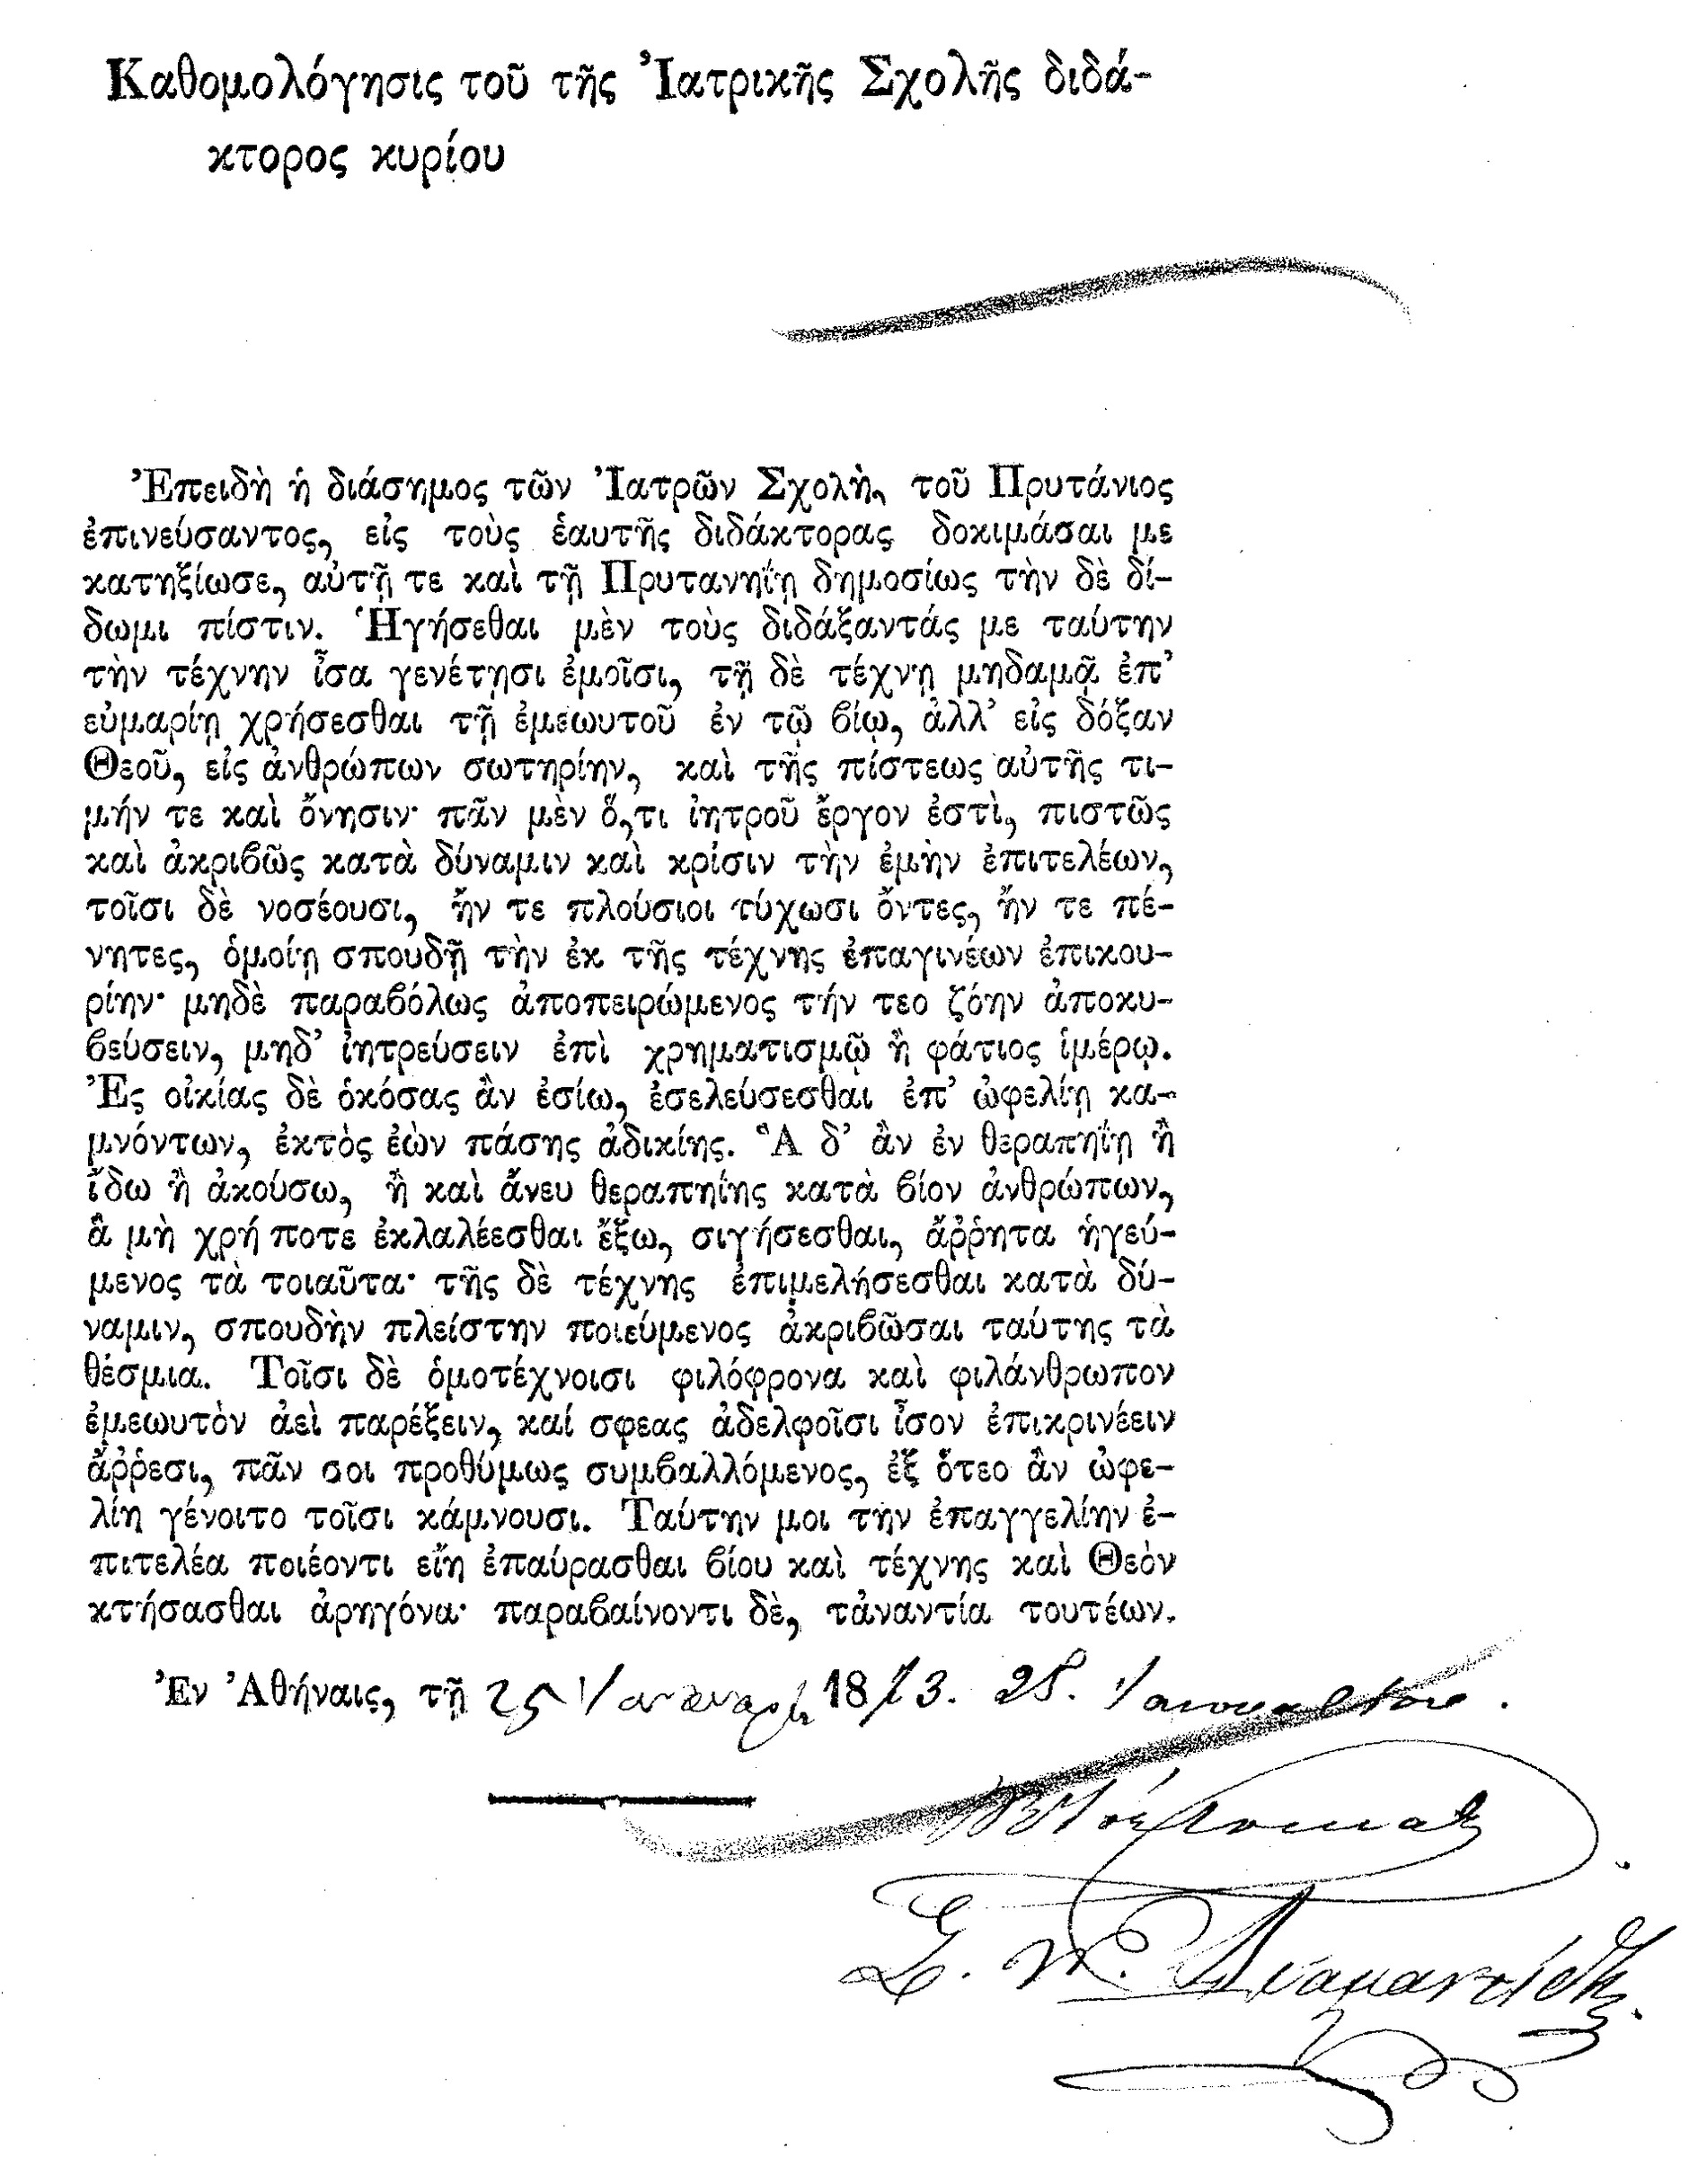 Καθομολόγησις τοῦ τῆς Ἰατρικῆς Σχολῆς διδά-
κτορος κυρίου
Ἐπειδὴ ἡ διάσημος τῶν Ἰατρῶν Σχολὴ, τοῦ Πρυτάνιος
ἐπινεύσαντος, εἰς τοὺς ἑαυτῆς διδάκτορας δοκιμάσαι με
κατηξίωσε, αὐτῇ τε καὶ τῇ Πρυτανηΐῃ δημοσίως τὴν δὲ δί-
δωμι πίστιν. Ἡγήσεθαι μὲν τοὺς διδάξαντάς με ταύτην
τὴν τέχνην ἶσα γενέτῃσι ἐμοῖσι, τῇ δὲ τέχνῃ μηδαμᾷ ἐπ’
εὐμαρίῃ χρήσεσθαι τῇ ἐμεωυτοῦ ἐν τῷ ϐίῳ, ἀλλ’ εἰς δόξαν
Θεοῦ, εἰς ἀνθρώπων σωτηρίην, καὶ τῆς πίστεως αὐτῆς τι-
μήν τε καὶ ὄνησιν· πᾶν μὲν ὅ,τι ἰητροῦ ἔργον ἐστὶ, πιστῶς
καὶ ἀκριϐῶς κατὰ δύναμιν καὶ κρίσιν τὴν ἐμὴν ἐπιτελέων,
τοῖσι δὲ νοσέουσι, ἤν τε πλούσιοι τύχωσι ὄντες, ἤν τε πέ-
νητες, ὁμοίῃ σπουδῇ τὴν ἐκ τῆς τέχνης ἐπαγινέων ἐπικου-
ρίην· μηδὲ παραϐόλως ἀποπειρώμενος τήν τεο ζόην ἀποκυ-
ϐεύσειν, μηδ’ ἰητρεύσειν ἐπὶ χρηματισμῷ ἢ φάτιος ἱμέρῳ.
Ἐς οἰκίας δὲ ὁκόσας ἂν ἐσίω, ἐσελεύσεσθαι ἐπ’ ὠφελίῃ κα-
μνόντων, ἐκτὸς ἐὼν πάσης ἀδικίης. Ἃ δ’ ἂν ἐν θεραπηΐῃ ἢ
ἴδω ἢ ἀκούσω, ἢ καὶ ἄνευ θεραπηΐης κατὰ ϐίον ἀνθρώπων,
ἃ μὴ χρή ποτε ἐκλαλέεσθαι ἔξω, σιγήσεσθαι, ἄῤῥητα ἡγεύ-
μενος τὰ τοιαῦτα· τῆς δὲ τέχνης ἐπιμελήσεσθαι κατὰ δύ-
ναμιν, σπουδὴν πλείστην ποιεύμενος ἀκριϐῶσαι ταύτης τὰ
θέσμια. Τοῖσι δὲ ὁμοτέχνοισι φιλόφρονα καὶ φιλάνθρωπον
ἐμεωυτὸν ἀεὶ παρέξειν, καί σφεας ἀδελφοῖσι ἶσον ἐπικρινέειν
ἄῤῥεσι, πᾶν σοι προθύμως συμϐαλλόμενος, ἐξ ὅτεο ἂν ὠφε-
λίη γένοιτο τοῖσι κάμνουσι. Ταύτην μοι τὴν ἐπαγγελίην ἐ-
πιτελέα ποιέοντι εἴη ἐπαύρασθαι ϐίου καὶ τέχνης καὶ Θεὸν
κτήσασθαι ἀρηγόνα· παραϐαίνοντι δὲ, τἀναντία τουτέων.
Ἐν Ἀθήναις, τῇ 25 1873. 25.
Διαμαντίδης